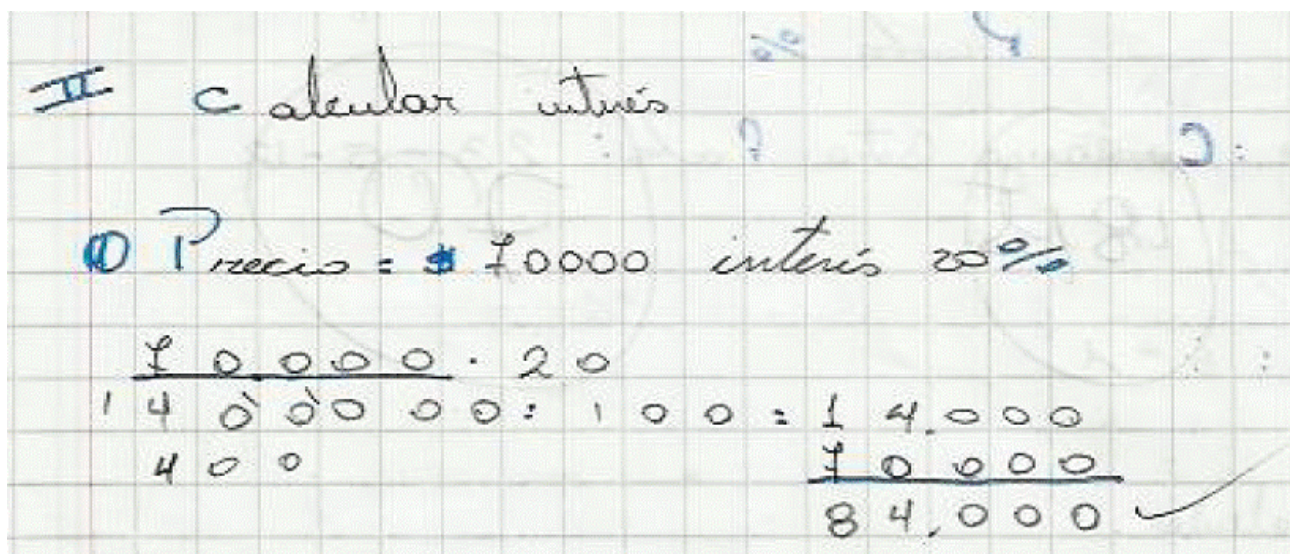 II Calcular interés
① Precio = $ 70000 interés 20%
70000 · 20
1400000 : 100 = 14.000
400 70000
84.000 ✓